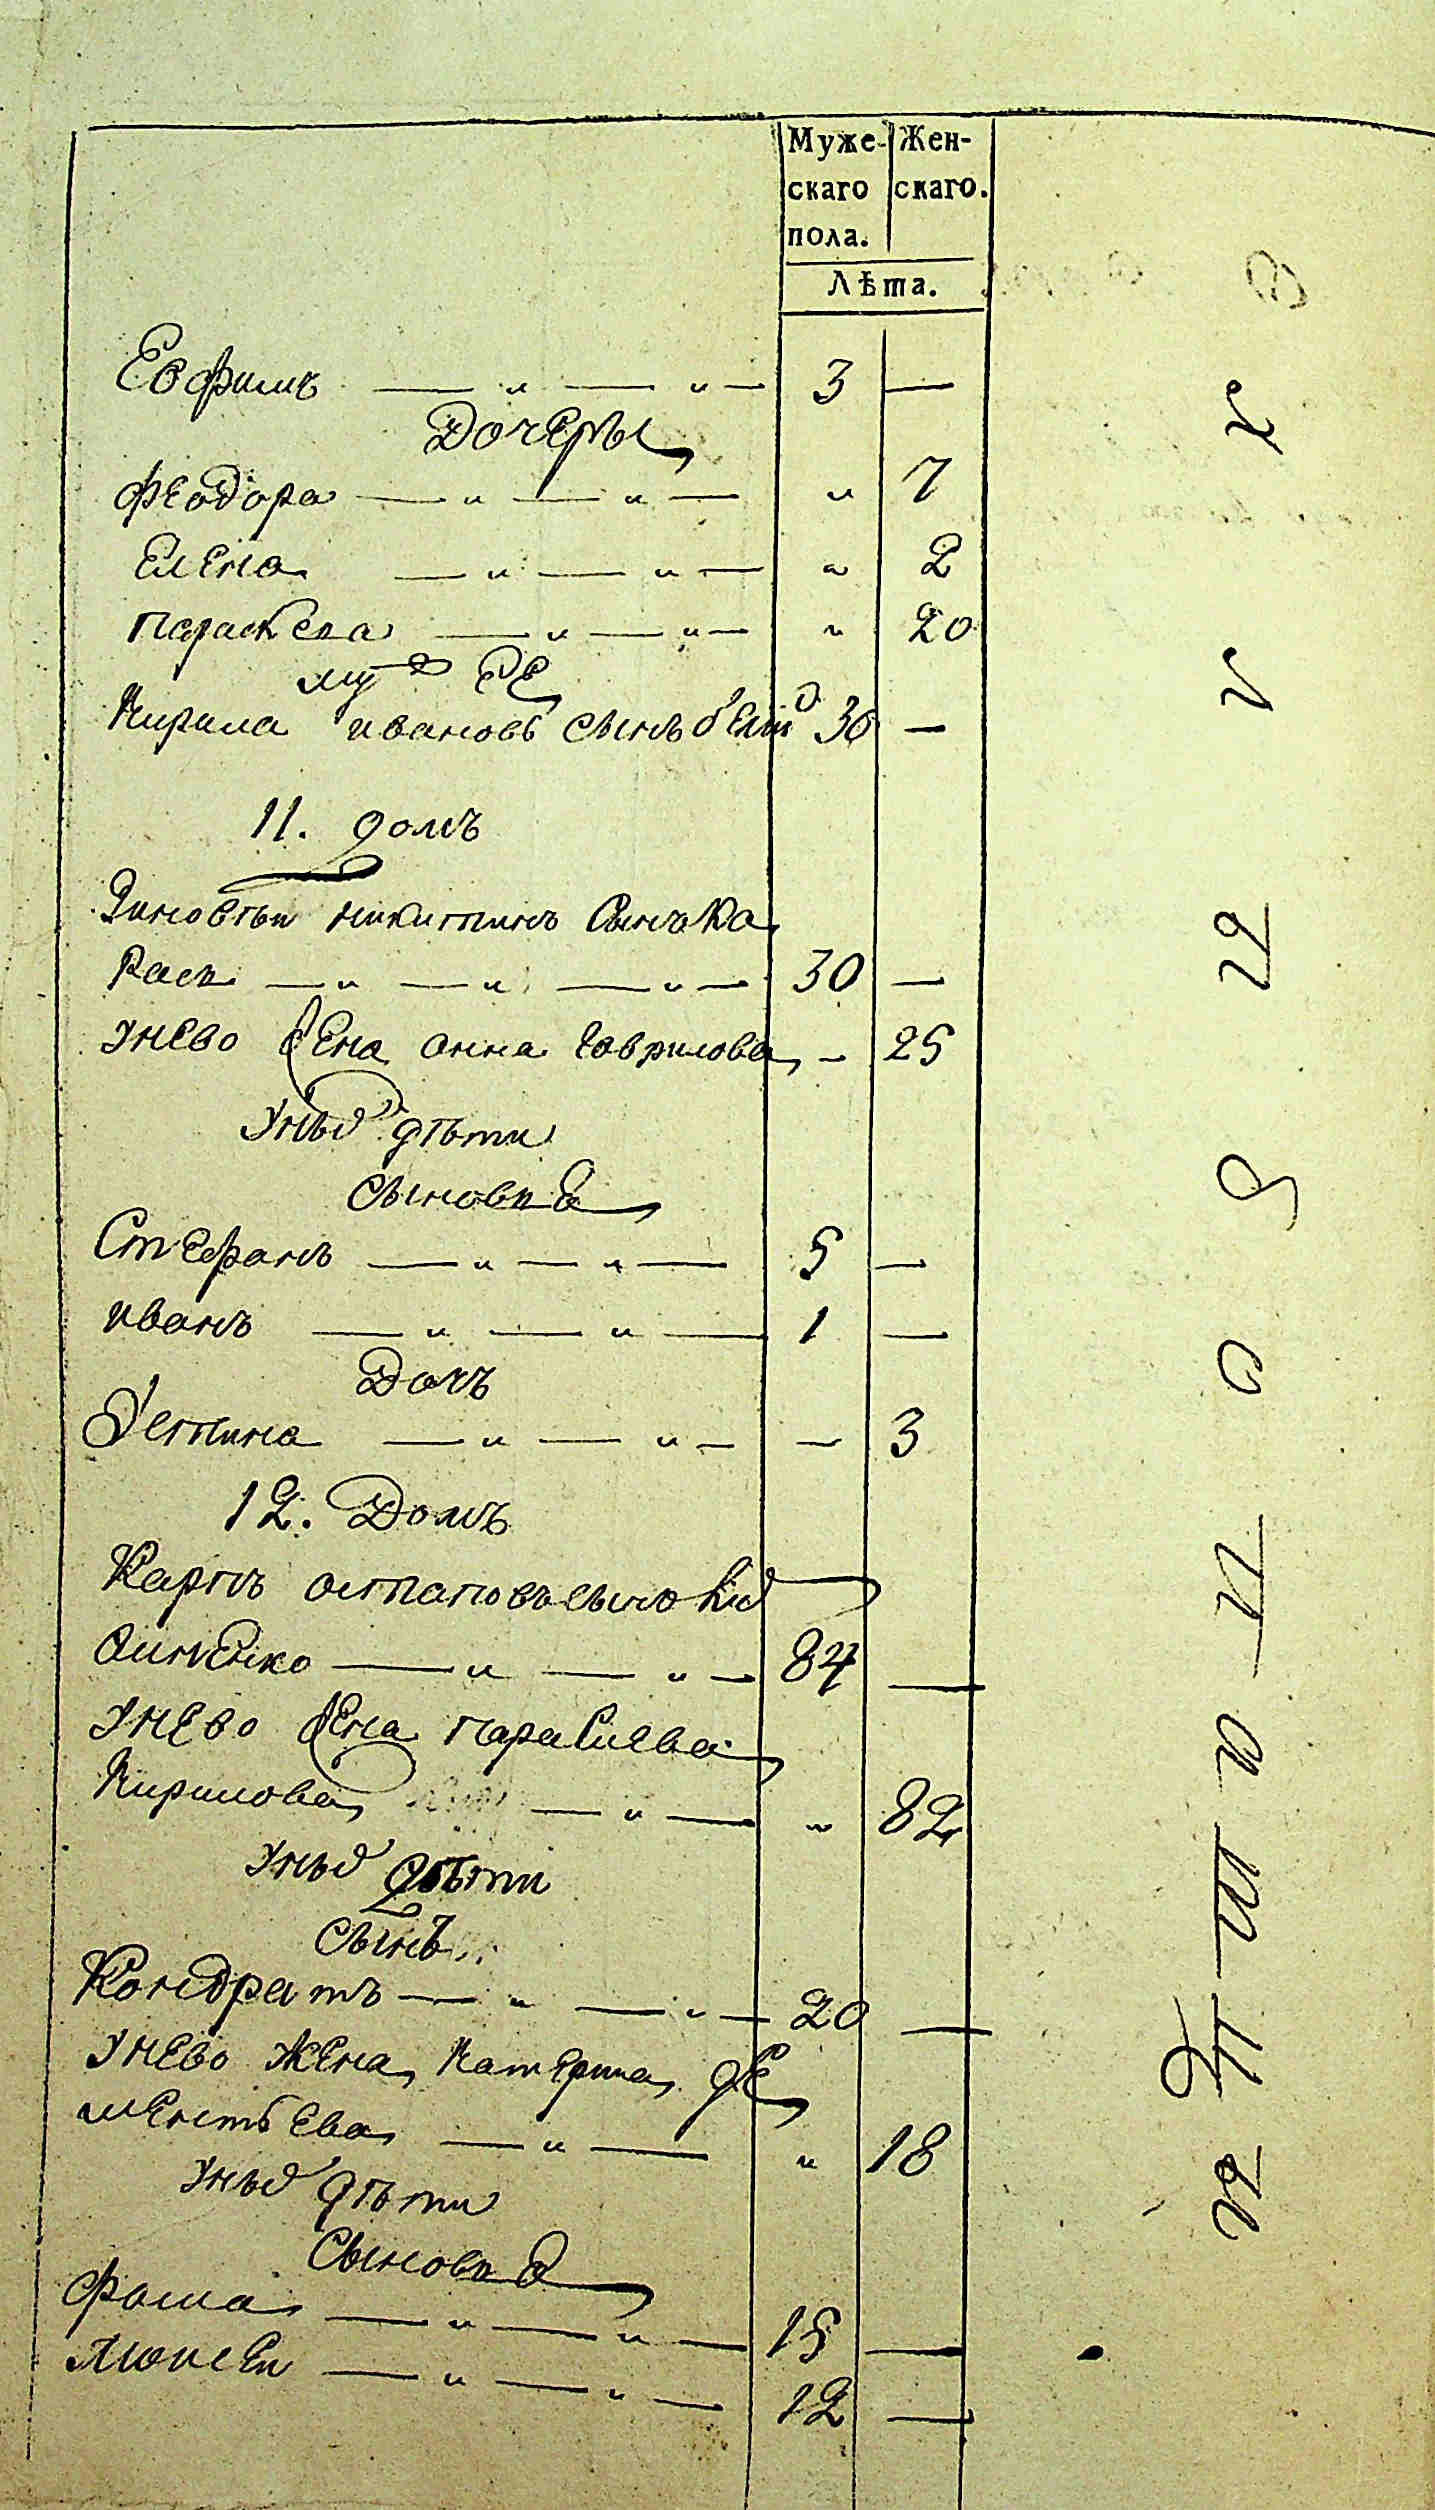 Муже-
скаго
пола.
Жен-
скаго.
Лѣта.
Евфимъ — „ — „ — 3 —
Дочеры
Феодора — „ — „ — „ 7
Елена — „ — „ — „ 2
Параскева — „ — „ — „ 20
Кирила ивановъ сынъ 30 —
11. домъ
Зиновѣи никитинъ сынъ Ка
расъ — „ — „ — „ — 30 —
унево жена анна гаврилова — 25
Уныхъ дѣти
сыновья
Стефанъ — „ — „ — 5 —
иванъ — „ — „ — 1 —
Дочъ
Устина — „ — „ — — 3
12. Домъ
Карпъ остаповъ сынъ
— „ — „ — 84 —
унево жена параскева
Кирилова — „ — „ 82
Уныхъ дѣти
сынъ
Кондратъ — „ — „ — 20 —
унево жена катерина де
ментьева — „ — „ 18
Уныхъ дѣти
сыновья
фома — „ — „ — 15 —
моисеи — „ — „ — 12 —